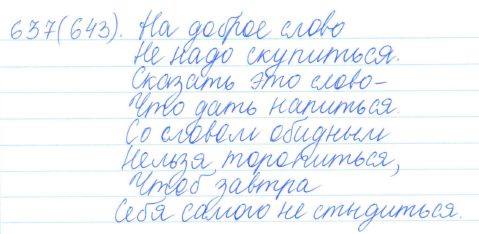 637(643). На доброе слово
Не надо скупиться.
Сказать это слово –
Что дать напиться.
Со словом обидным
Нельзя торопиться,
Чтоб завтра
Себя самого не стыдиться.